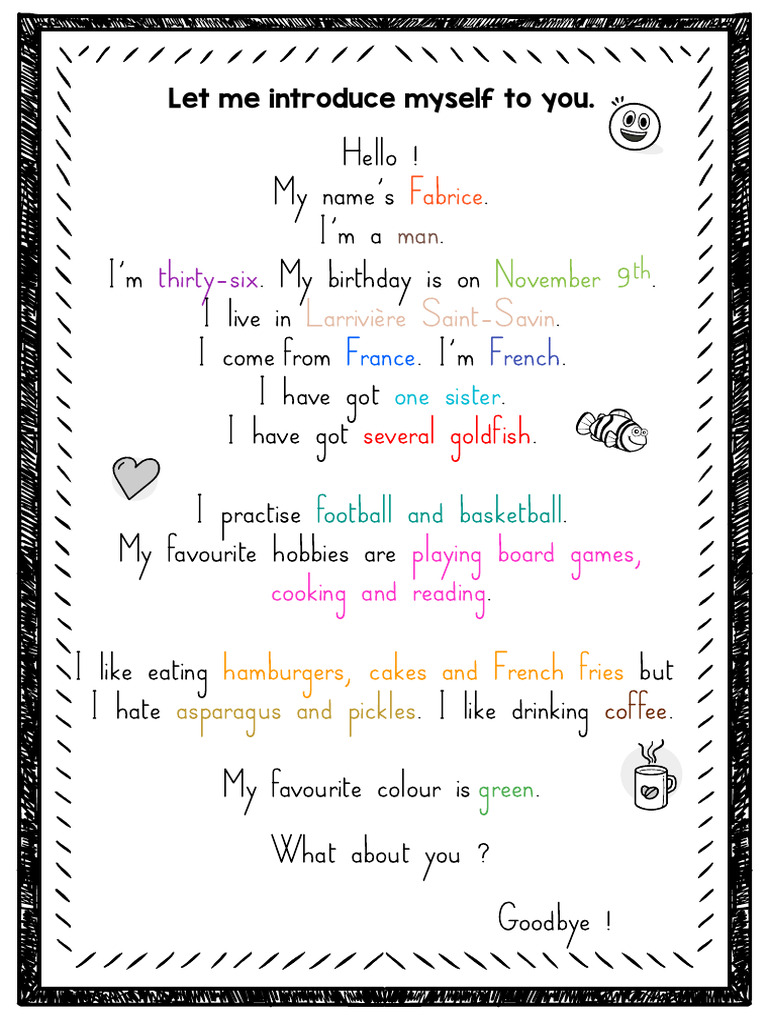 Let me introduce myself to you.
Hello !
My name's Fabrice.
I'm a man.
I'm thirty-six. My birthday is on November 9th.
I live in Larrivière Saint-Savin.
I come from France. I'm French.
I have got one sister.
I have got several goldfish.
I practise football and basketball.
My favourite hobbies are playing board games,
cooking and reading.
I like eating hamburgers, cakes and French fries but
I hate asparagus and pickles. I like drinking coffee.
My favourite colour is green.
What about you ?
Goodbye !